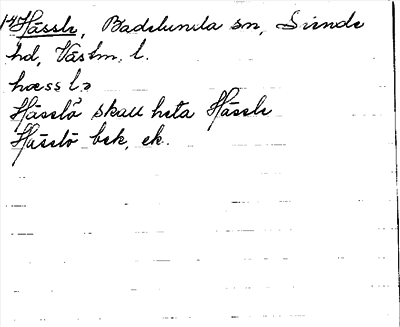 Hässle, Badelunda sn, Siende
hd, Västm. l.
hæsslə
Hässlö skall heta Hässle
Hässlö bek. ek.